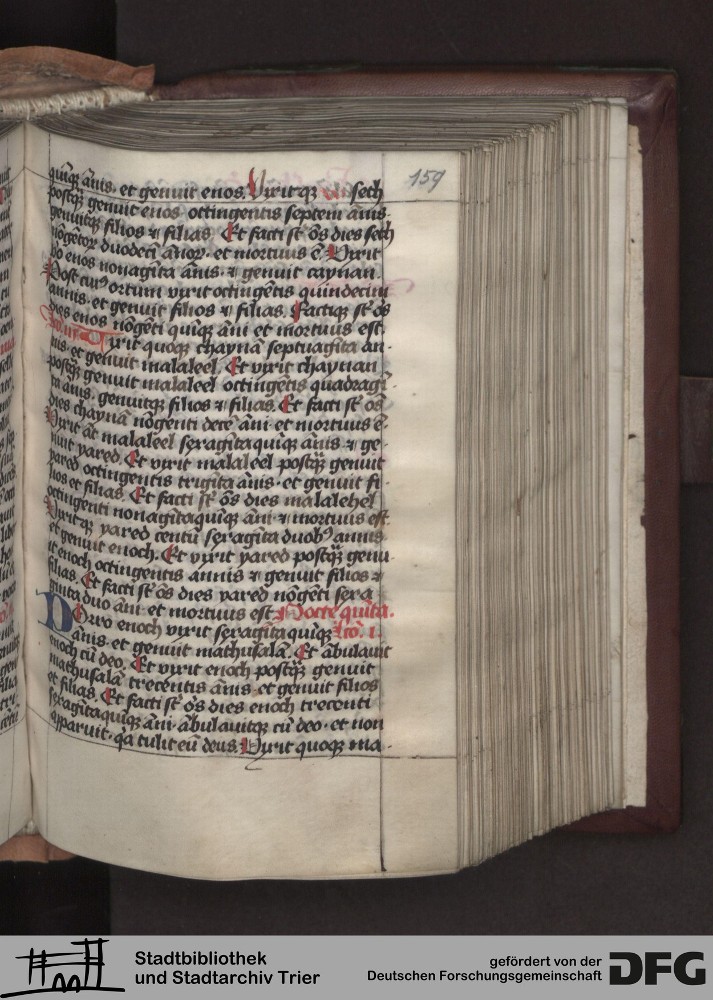 159
quīqʒ ānis. et genuit enos. Vixitqʒ seth
postqʒ genuit enos octingentis septem ānis.
genuitqʒ filios ⁊ filias. Et facti sūt ōs dies seth
nōgētoꝝ duodeci ānoꝝ. et mortuus ē. Vixit
vo enos nonagīta ānis. ⁊ genuit caynan.
Post cuiꝰ ortum vixit octingētis quindecim
annis. et genuit filios ⁊ filias. Factiqʒ sūt ōs
dies enos nōgēti quīqʒ āni et mortuus est.
Vixit quoqʒ chaynā septuagīta an-
nis. et genuit malaleel. Et vixit chaynan
postqʒ genuit malaleel octingētis quadragī-
ta ānis. genuitqʒ filios ⁊ filias. Et facti sūt ōs
dies chaynā nōgenti decē āni. et mortuus ē.
Vixit āt malaleel sexagītaquīqʒ ānis ⁊ ge-
nuit yared. Et vixit malaleel postqʒ genuit
yared octingentis trigīta ānis. et genuit fi-
lios et filias. Et facti sūt ōs dies malalehel
octingenti nonagītaquīqʒ āni ⁊ mortuus est.
Vixitqʒ yared centū sexagīta duobꝰ annis
et genuit enoch. Et vixit yared postqʒ genu-
it enoch octingentis annis ⁊ genuit filios ⁊
filias. Et facti sūt ōs dies yared nōgēti sexa
ginta duo āni et mortuus est. Nocte quīta.
Porro enoch vixit sexagītaquīqʒ lco. i.
ānis. et genuit mathusalā. Et ābulauit
enoch cū deo. Et vixit enoch postqʒ genuit
mathusalā trecētis ānis. et genuit filios
et filias. Et facti sūt ōs dies enoch trecenti
sexagītaquīqʒ āni. ābulauitqʒ cū deo. et non
apparuit. qa tulit eū deus. Vixit quoqʒ ma-
Stadtbibliothek
und Stadtarchiv Trier
gefördert von der
Deutschen Forschungsgemeinschaft
DFG